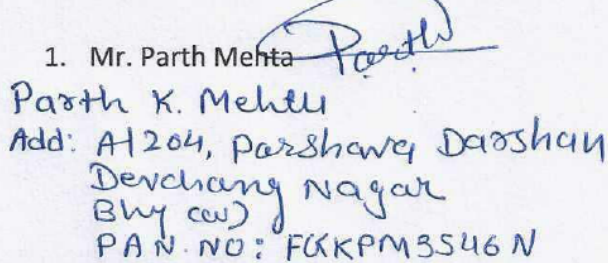 1. Mr. Parth Mehta Parth
Parth K. Mehta
Add: A/204, Parshava Darshan
Devchang Nagar
Bhy (w)
PAN. NO: FKKPM3546N